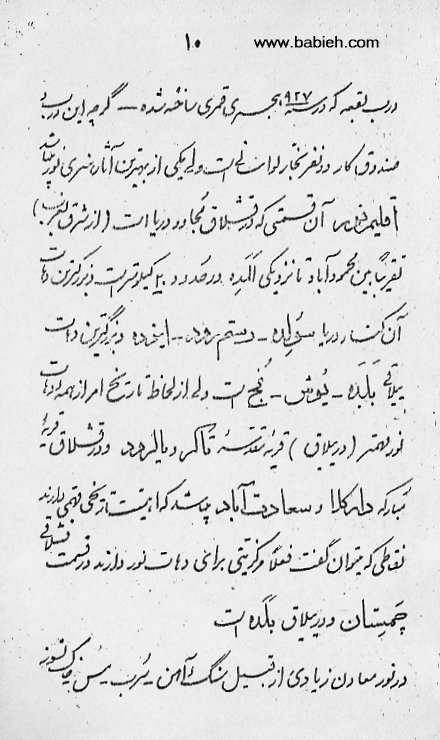 ۱۰
www.babieh.com
درب بقعه که در سنه ۹۲۷ هجری قمری ساخته شده – گرچه این درب و
صندوق کار دو نفر نجار لواسانی است ولی یکی از بهترین آثار هنری نور میباشد
اقلیم نور، آن قسمتی که در قشلاق مجاور دریا است (از شرق بغرب)
تقریباً بین محمودآباد تا نزدیکی المده در حدود ۳۰ کیلومتر است و بزرگترین دهات
آن کنار دریا سولده – رستم رود – ایزده و بزرگترین دهات
ییلاقی بلده – یوش – کجح است ولی از لحاظ تاریخ امر از همه دهات
نور مهمتر (در ییلاق) قریه مقدسه تاکر و یالرود و در قشلاق قریه
مبارکه دارکلا و سعادت آباد میباشد که اهمیت تاریخی مهمی دارند
نقاطی که میتوان گفت فعلاً مرکزیتی برای دهات نور دارند در قسمت قشلاقی
چمستان و در ییلاق بلده است
در نور معادن زیادی از قبیل سنگ آهن – سرب – مس – خاک نسوز